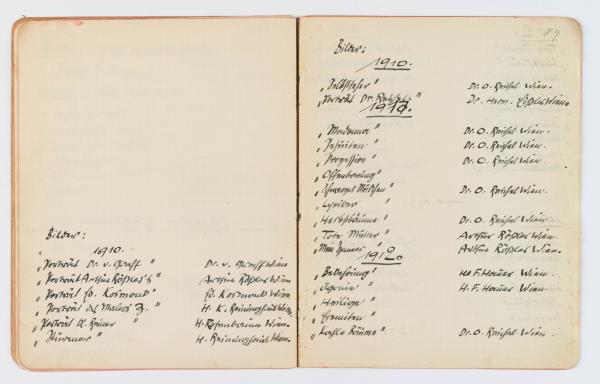 Bilder:
1910.
„Porträt Dr. v. Graff " Dr. v. Graff Wien
„Porträt Arthur Rößler's" Arthur Rößler Wien
„Porträt Ed. Kosmack" Ed. Kosmack Wien
„Porträt des Malers H. K. Reininghaus Wien
„Porträt Rainer " H. Rosenbaum Wien.
H. Reininghaus Wien.
89
Bilder:
1910.
„Selbstseher" Dr. O. Reichel Wien.
„Porträt Dr. Reichel " Dr. Herm. Wien.
„ Dr. O. Reichel Wien.
„ Dr. O. Reichel Wien.
„Prozession " Dr. O. Reichel Wien.
„Offenbarung"
„Schwarzes Mädchen" Dr. O. Reichel Wien.
„Lyriker "
„Herbstbäume" Dr. O. Reichel Wien.
„Tote Mutter" Arthur Rößler Wien
„Mein Zimmer " Arthur Rößler Wien.
„Bekehrung" H. F. Hauer Wien.
„Agonie " H. F. Hauer Wien.
„Heilige "
„Eremiten "
„Kahle Bäume" Dr. O. Reichel Wien.